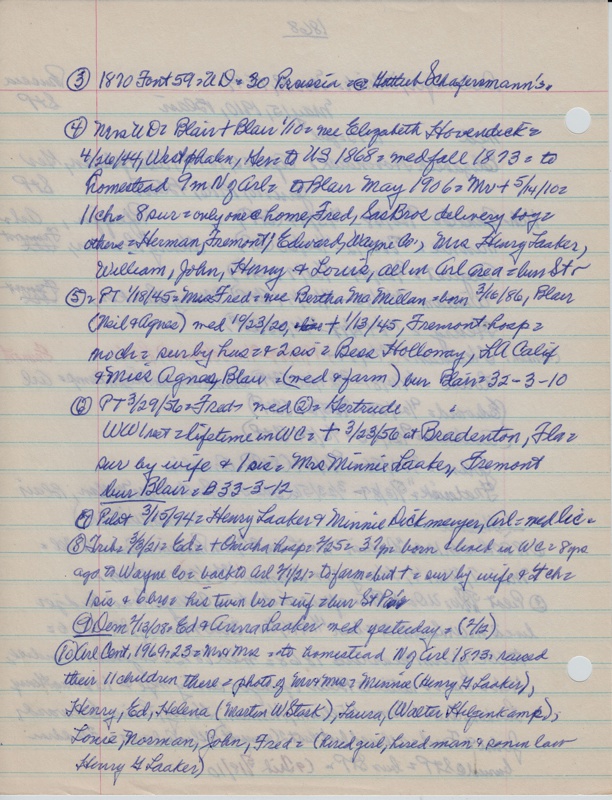 1868
③ 1870 Font 59 = U D = 30 Prussia = @ Schafersmann's.
④ Mrs U D = Blair + Blair 1/10 = nee Elizabeth Hovendick =
4/26/44, West Han to US 1868 = med fall 1873 = to
homestead 9 m N of Arl = to Blair May 1906 = Mr + 5/14/10 =
11 ch = 8 sur = only one @ home, Fred, Sas Bros delivery boy =
others = Herman, Fremont, Edward, Wayne Co., Mrs Henry Laaker,
William, John, Henry & Louis, all in Arl area = bur St
⑤ = PT 1/18/45 = Mrs Fred = nee Bertha Mac Millan = born 3/16/86, Blair
(Neil & Agnes) med 10/23/20, + 1/13/45, Fremont hosp =
no ch = sur by hus = & 2 sis = Bess Holloway, LA Calif
& Miss Agnes, Blair = (med & farm) bur Blair = 32-3-10
⑥ PT 3/29/56 = Fred = med ② = Gertrude
WW I vet = lifetime in WC = + 3/23/56 at Bradenton, Fla =
sur by wife & 1 sis = Mrs Minnie Laaker, Fremont
bur Blair = B 33-3-12
⑦ Pilot 3/15/94 = Henry Laaker & Minnie Dickmeyer, Arl = med lic =
⑧ Trib = 3/3/21 = Ed = + Omaha hosp = 2/25 = 37 yr born & lived in WC = 8 yrs
ago to Wayne Co = back to Arl 2/1/21 = to farm = but + = sur by wife & ch =
1 sis & 6 bro = his twin bro + inf = bur St P's
⑨ Dem 2/13/08 = Ed & Anna Laaker med yesterday = (2/12)
⑩ Arl Cent, 1969 = 23 = Mr & Mrs = to homestead N of Arl 1873 = raised
their 11 children there = photo of Mr & Mrs = Minnie (Henry G Laaker),
Henry, Ed, Helena (Martin W Stork), Laura, (Walter Hilgenkamp),
Louie, Norman, John, Fred = (hired girl, hired man & son in law
Henry G Laaker)